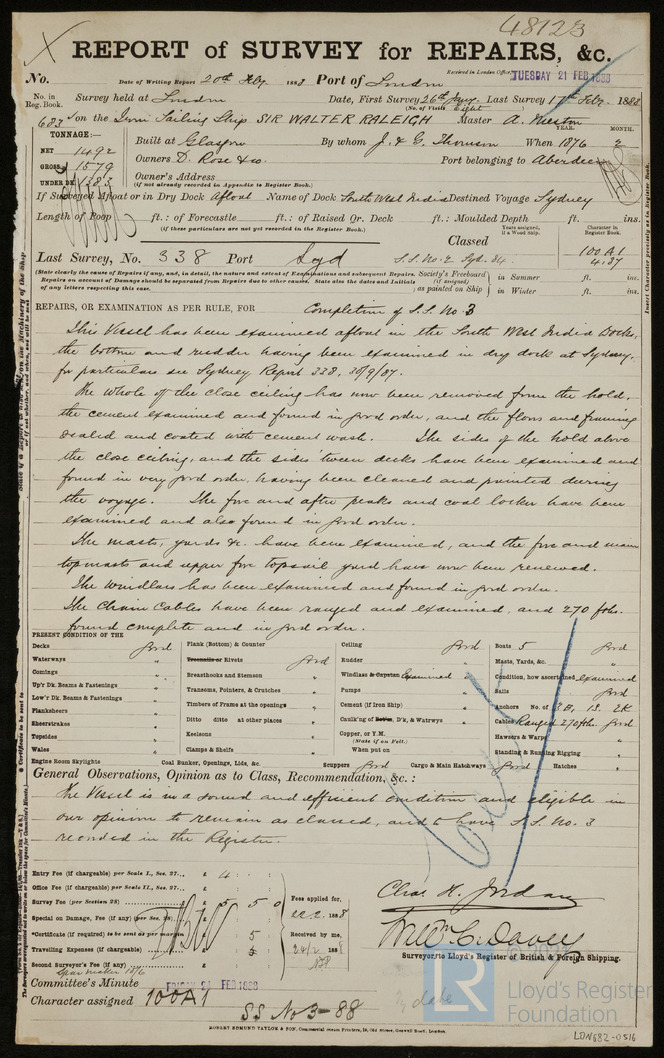 48123
REPORT of SURVEY for REPAIRS, &c.
No. Date of Writing Report 20th Feby 1888 Port of London Received in London Office TUESDAY 21 FEB 1888
No. in Reg. Book. Survey held at London Date, First Survey 26th Jany. Last Survey 17th Feby. 1888
(No. of Visits Eight)
687 on the Iron Sailing Ship SIR WALTER RALEIGH Master A. Weston
TONNAGE:— YEAR. MONTH.
NET 1492 Built at Glasgow By whom J. & G. Thomson When 1876 2
GROSS 1579 Owners D. Rose & Co. Port belonging to Aberdeen
UNDER DK 1383 Owner's Address
(if not already recorded in Appendix to Register Book.)
If Surveyed Afloat or in Dry Dock Afloat Name of Dock South West India Destined Voyage Sydney
Length of Poop ft.: of Forecastle ft.: of Raised Qr. Deck ft.: Moulded Depth ft. ins.
(if these particulars are not yet recorded in the Register Book.)
Years assigned, if a Wood Ship. Character in Register Book.
Classed
Last Survey, No. 338 Port Syd S.S. No. 2 Syd. 84. 100 A1 4.87
(State clearly the cause of Repairs if any, and, in detail, the nature and extent of Examinations and subsequent Repairs.
Repairs on account of Damage should be separated from Repairs due to other causes. State also the dates and Initials
of any letters respecting this case.)
Society's Freeboard (if assigned) as painted on Ship in Summer ft. ins.
in Winter ft. ins.
REPAIRS, OR EXAMINATION AS PER RULE, FOR Completion of S.S. No 3
This Vessel has been examined afloat in the South West India Docks,
the bottom and rudder having been examined in dry dock at Sydney.
for particulars see Sydney Report 338, 30/9/87.
The whole of the close ceiling has now been removed from the hold,
the cement examined and found in good order, and the floors and framing
scaled and coated with cement wash. The sides of the hold above
the close ceiling, and the sides 'tween decks have been examined and
found in very good order, having been cleaned and painted during
the voyage. The fore and after peaks and coal locker have been
examined and also found in good order.
The masts, yards &c. have been examined, and the fore and main
topmasts and upper fore topsail yard have now been renewed.
The windlass has been examined and found in good order.
The Chain Cables have been ranged and examined, and 270 fths.
found complete and in good order.
PRESENT CONDITION OF THE
Decks good Plank (Bottom) & Counter Ceiling good Boats 5 good
Waterways " Treenails or Rivets good Rudder " Masts, Yards, &c. "
Comings " Breasthooks and Stemson " Windlass & Capstan Examined Condition, how ascertained examined
Up'r Dk. Beams & Fastenings " Transoms, Pointers, & Crutches " Pumps " Sails good
Low'r Dk. Beams & Fastenings " Timbers of Frame at the openings " Cement (if Iron Ship) " Anchors No. of 3B, 1S. 2K
Planksheers " Ditto ditto at other places " Caulk'ng of Bot'm, D'k, & Watrwys " Cables Ranged 270 fths. good
Sheerstrakes " Keelsons " Copper, or Y.M. (State if on Felt.) Hawsers & Warps "
Topsides " Clamps & Shelfs " When put on Standing & Running Rigging "
Wales "
Engine Room Skylights Coal Bunker, Openings, Lids, &c. Scuppers good Cargo & Main Hatchways good Hatches "
General Observations, Opinion as to Class, Recommendation, &c.:
The Vessel is in a sound and efficient condition and eligible in
our opinion to remain as classed, and to have S.S. No. 3
recorded in the Register.
Entry Fee (if chargeable) per Scale I., Sec. 27... £ 4
Office Fee (if chargeable) per Scale II., Sec. 27... £
Survey Fee (per Section 28) £ 5 5 0 Fees applied for,
Special on Damage, Fee (if any) (per Sec. 28) £ 22.2 1888
*Certificate (if required) to be sent as per margin 5 Received by me,
Travelling Expenses (if chargeable) £ 24/2 1888
Second Surveyor's Fee (if any) £
Chas. H. Jordan
Wm. C. Davey
Surveyors to Lloyd's Register of British & Foreign Shipping.
Committee's Minute FRIDAY 24 FEB 1888
Character assigned 100A1
SS No 3-88
ROBERT EDMUND TAYLOR & SON, Commercial Steam Printers, 19, Old Street, Goswell Road, London.
LR Lloyd's Register Foundation
LON682-0516